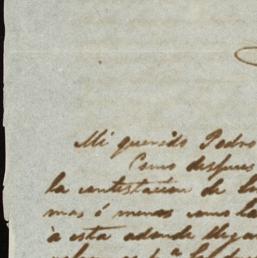 Mi querido Pedro
Como despues
la contestacion de
mas ó menos como la
á esta adonde llega